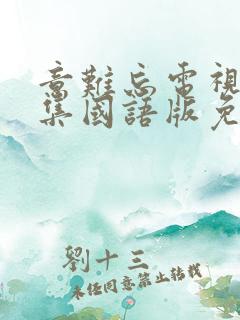 意難忘電視
集國語版免
劉十三
未经同意禁止转载